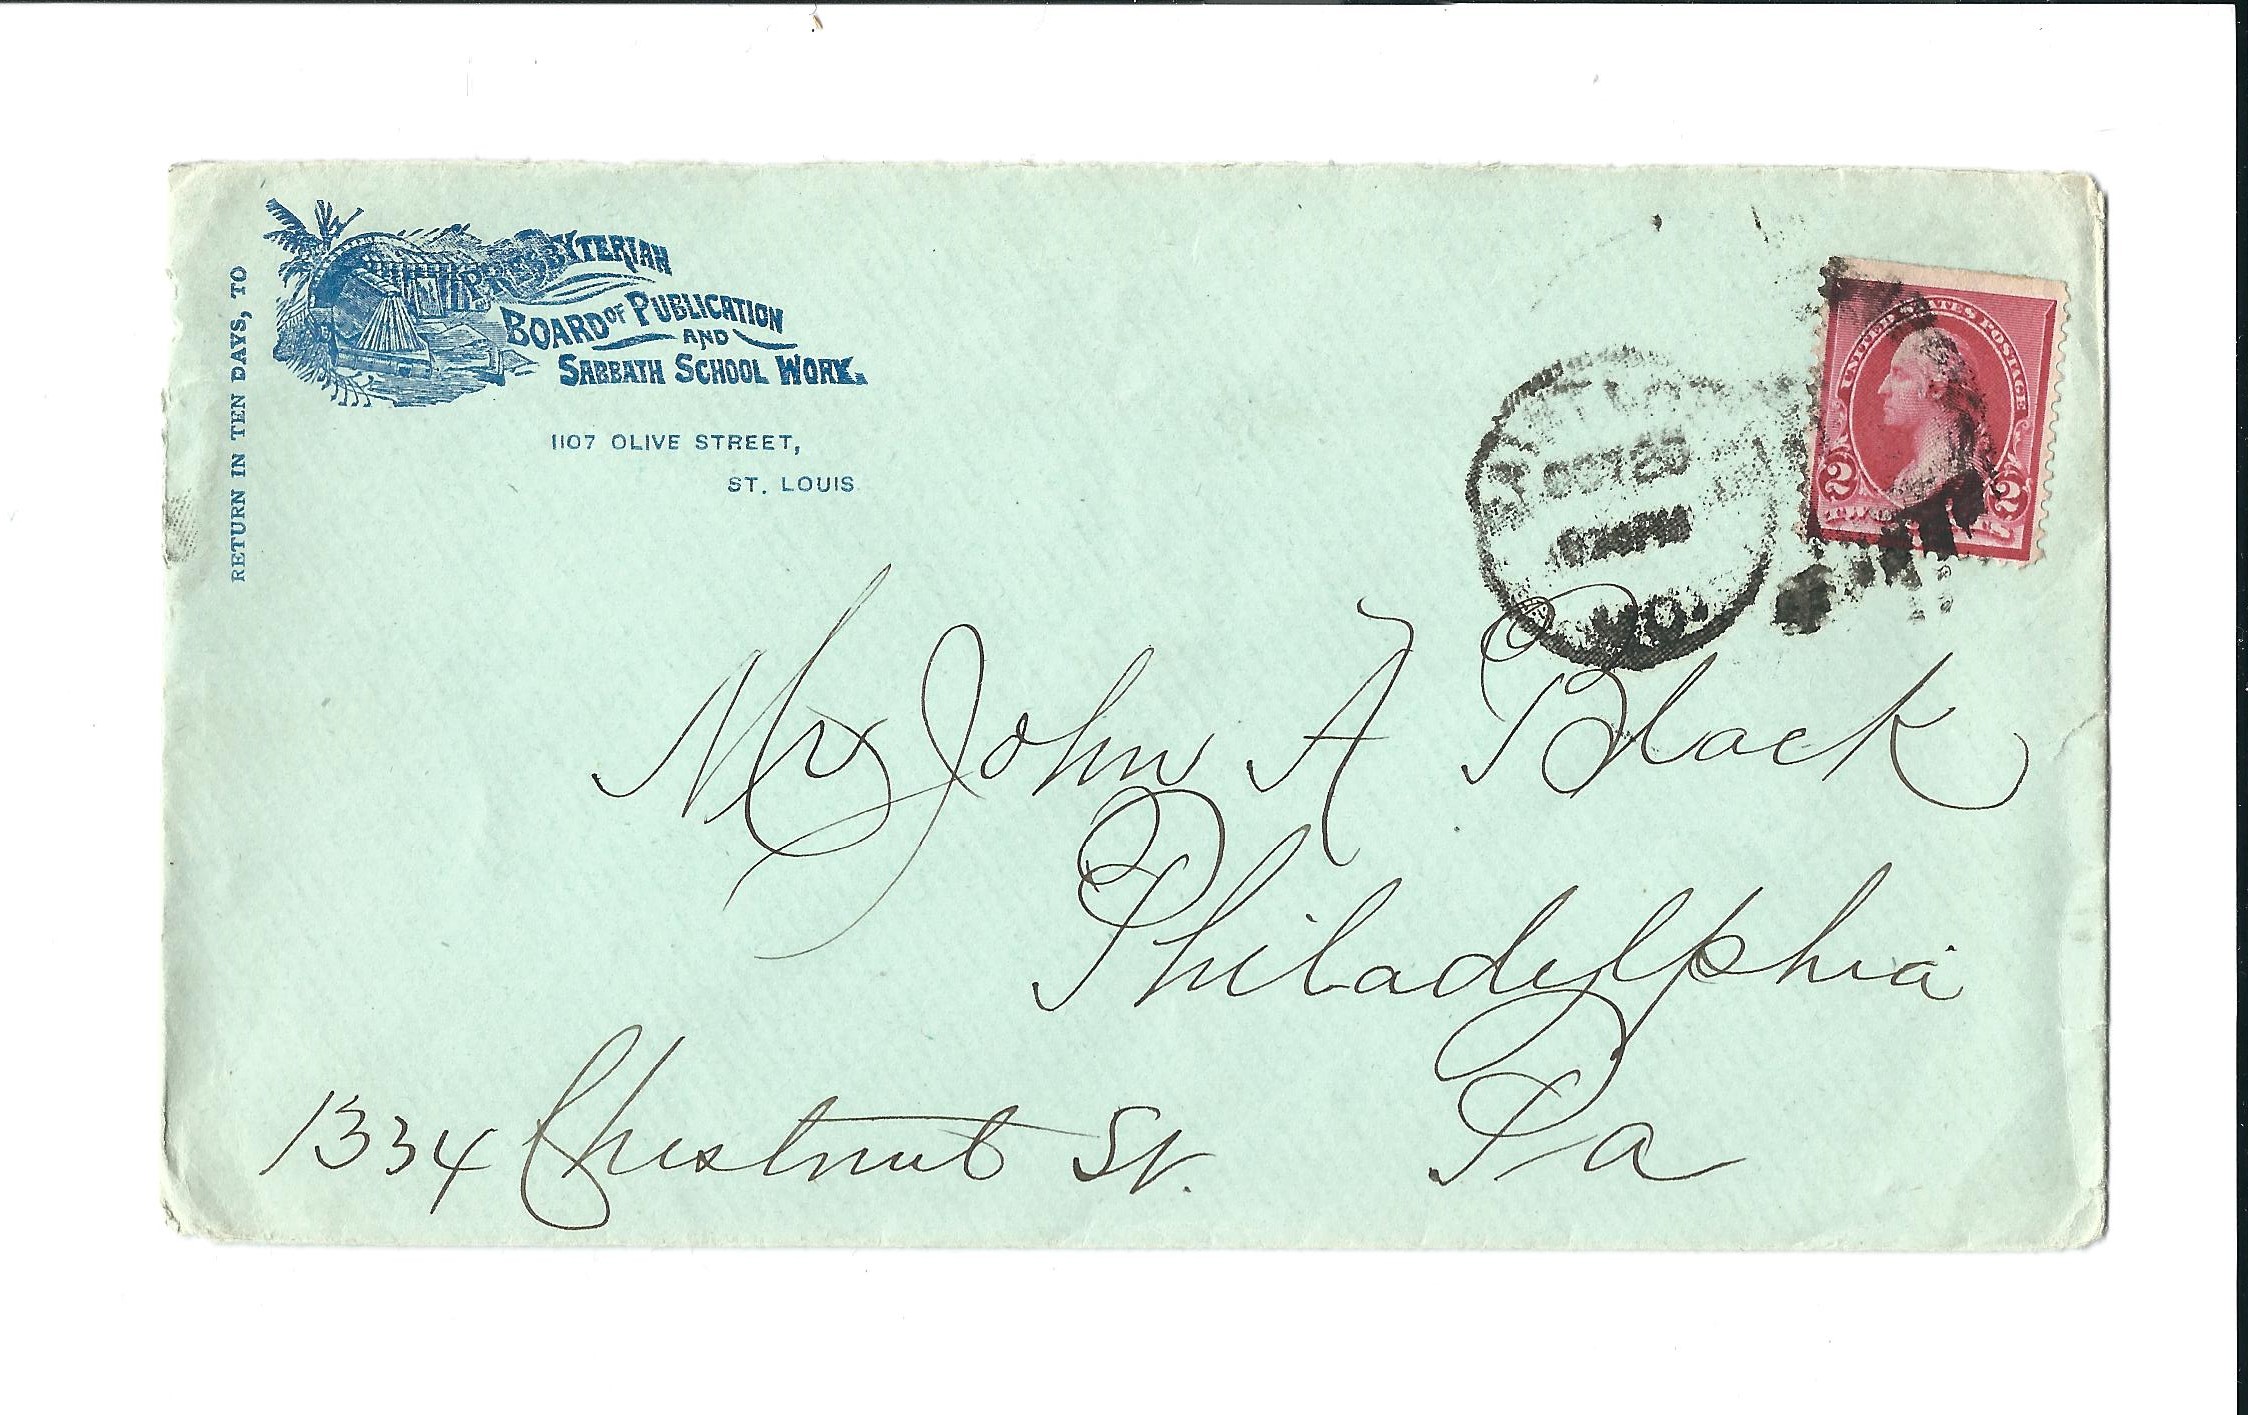 RETURN IN TEN DAYS, TO
PRESBYTERIAN
BOARD OF PUBLICATION
AND
SABBATH SCHOOL WORK.
1107 OLIVE STREET,
ST. LOUIS
SAINT LOUIS
OCT 25
PM
MO.
UNITED STATES POSTAGE
2 2
Mr John A Black
Philadelphia
Pa
1334 Chestnut St.